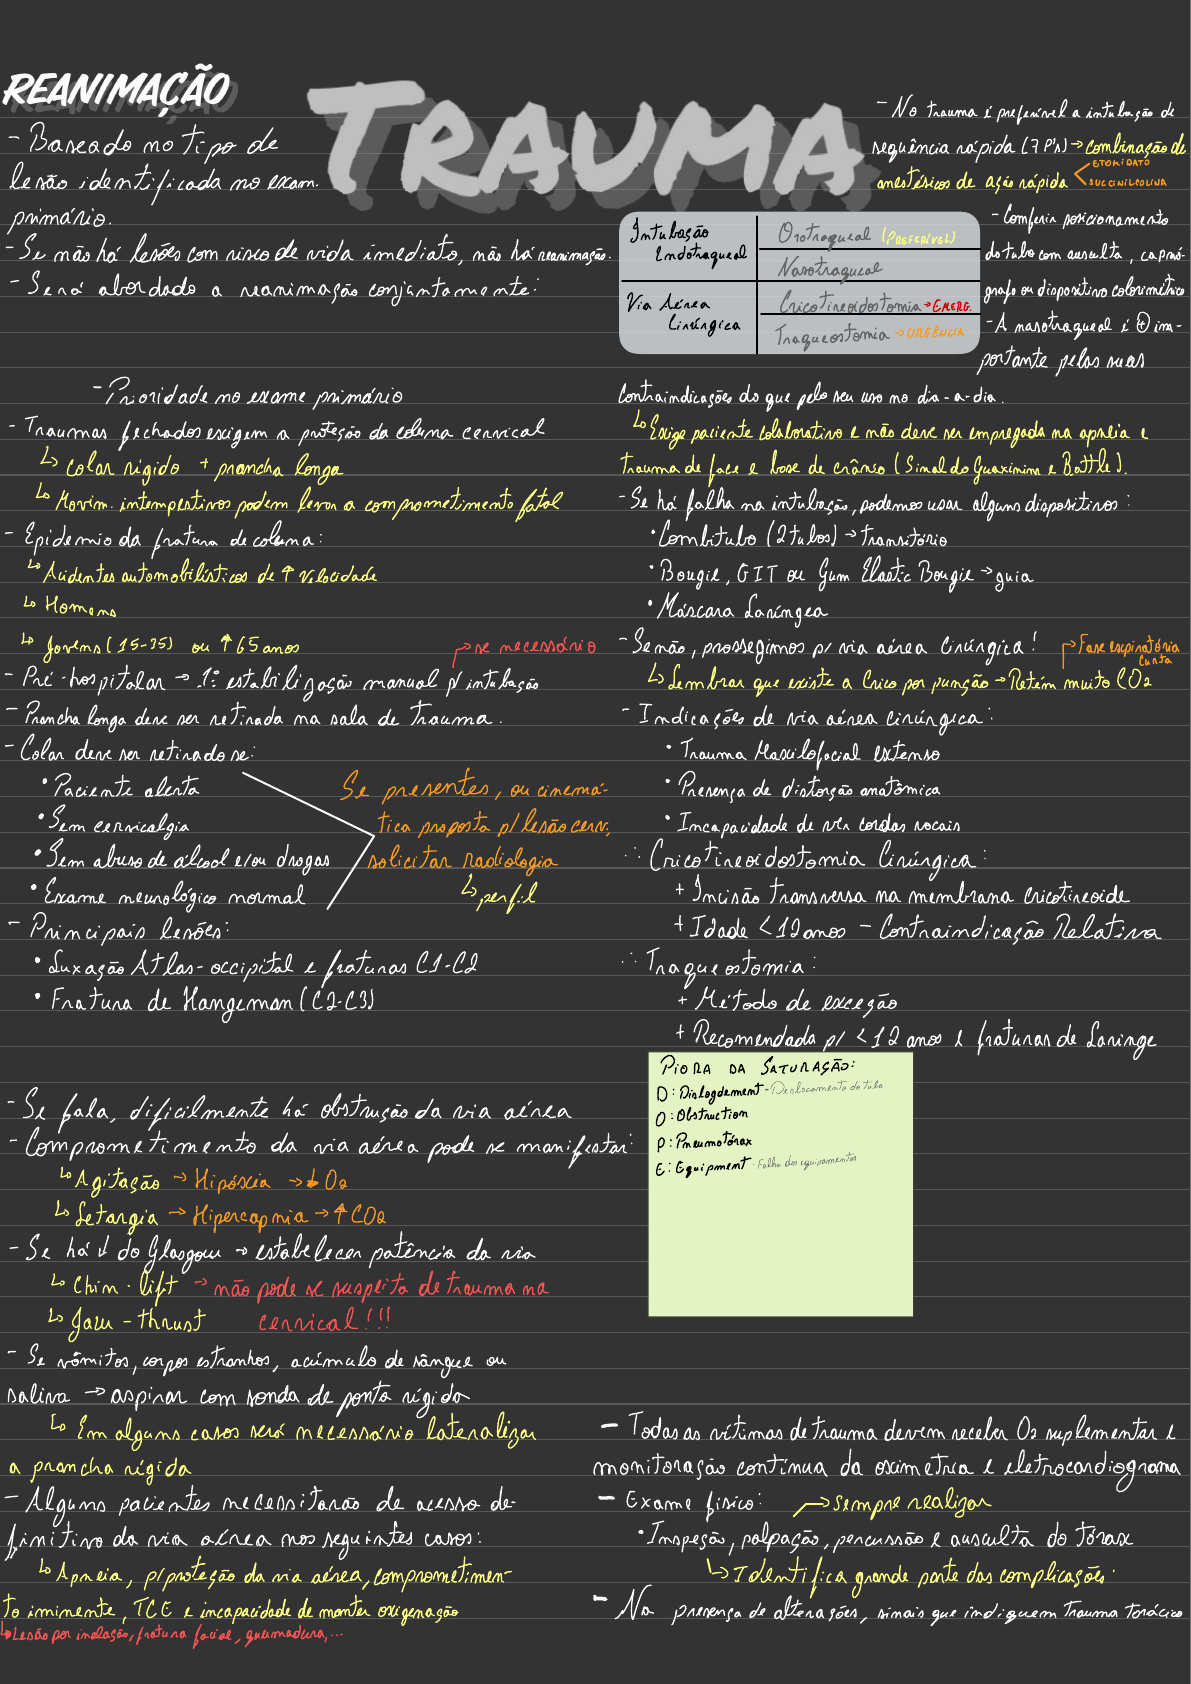 REANIMAÇÃO
TRAUMA
- Baseado no tipo de
lesão identificada no exam.
primário.
- Se não há lesões com risco de vida imediato, não há reanimação.
- Será abordado a reanimação conjuntamente:
- Prioridade no exame primário
- Traumas fechados exigem a proteção da coluna cervical
↳ Colar rígido + prancha longa
↳ Movim. intempestivos podem levar a comprometimento fatal
- Epidemio da fratura de coluna:
↳ Acidentes automobilísticos de ↑ Velocidade
↳ Homens
↳ Jovens (15-35) ou ↑ 65 anos
→ se necessário
- Pré-hospitalar → 1º estabilização manual p/ intubação
- Prancha longa deve ser retirada na sala de trauma.
- Colar deve ser retirado se:
• Paciente alerta
• Sem cervicalgia
• Sem abuso de álcool e/ou drogas
• Exame neurológico normal
Se presentes, ou cinemá-
tica proposta p/ lesão cerv,
solicitar radiologia
↳ perfil
- Principais lesões:
• Luxação Atlas-occipital e fraturas C1-C2
• Fratura de Hangeman (C2-C3)
- Se fala, dificilmente há obstrução da via aérea
- Comprometimento da via aérea pode se manifestar:
↳ Agitação → Hipóxia → ↓ O2
↳ Letargia → Hipercapnia → ↑ CO2
- Se há ↓ do Glasgow → estabelecer patência da via
↳ Chin-lift → não pode se suspeita de trauma na
↳ Jaw-thrust cervical!!!
- Se vômitos, corpos estranhos, acúmulo de sângue ou
saliva → aspirar com sonda de ponta rígida
↳ Em alguns casos será necessário lateralizar
a prancha rígida
- Alguns pacientes necessitarão de acesso de-
finitivo da via aérea nos seguintes casos:
↳ Apneia, p/ proteção da via aérea, comprometimen-
to iminente, TCE e incapacidade de manter oxigenação
↳ Lesão por inalação, fratura facial, queimadura,...
- No trauma é preferível a intubação de
sequência rápida (7 P's) → combinação de
anestésicos de ação rápida < ETOMIDATO
SUCCINILCOLINA
Intubação
Endotraqueal
Orotraqueal (PREFERÍVEL)
Nasotraqueal
Via Aérea
Cirúrgica
Cricotireoidostomia → EMERG.
Traqueostomia → URGÊNCIA
- Conferir posicionamento
do tubo com ausculta, capnó-
grafo ou dispositivo colorimétrico
- A nasotraqueal é ⊕ im-
portante pelas suas
contraindicações do que pelo seu uso no dia-a-dia.
↳ Exige paciente colaborativo e não deve ser empregada na apneia e
trauma de face e base de crânio (Sinal do Guaxinim e Battle).
- Se há falha na intubação, podemos usar alguns dispositivos:
• Combitubo (2 tubos) → transitório
• Bougie, GIT ou Gum Elastic Bougie → guia
• Máscara Laríngea
- Se não, prossegimos p/ via aérea Cirúrgica!
→ Fase expiratória
curta
↳ Lembrar que existe a Crico por punção → Retém muito CO2
- Indicações de via aérea cirúrgica:
• Trauma Maxilofacial extenso
• Presença de distorção anatômica
• Incapacidade de ver cordas vocais
∴ Cricotireoidostomia Cirúrgica:
+ Incisão transversa na membrana cricotireoide
+ Idade < 12 anos - Contraindicação Relativa
∴ Traqueostomia:
+ Método de exceção
+ Recomendada p/ < 12 anos e fraturas de Laringe
PIORA DA SATURAÇÃO:
D: Dislogdement - Deslocamento do tubo
O: Obstruction
P: Pneumotórax
E: Equipment - Falha dos equipamentos
- Todas as vítimas de trauma devem receber O2 suplementar e
monitoração contínua da oximetria e eletrocardiograma
- Exame físico: → Sempre realizar
• Inspeção, palpação, percussão e ausculta do tórax
↳ Identifica grande parte das complicações.
- Na presença de alterações, sinais que indiquem Trauma torácico